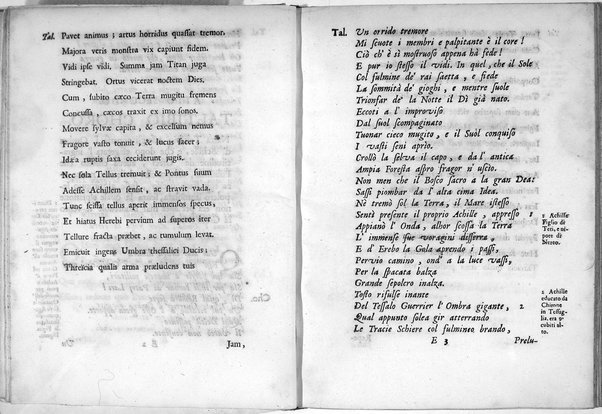 Tal. Pavet animus; artus horridus quassat tremor.
Majora veris monstra vix capiunt fidem.
Vidi ipse vidi. Summa jam Titan juga
Stringebat. Ortus vicerat noctem Dies.
Cum, subito cæco Terra mugitu fremens
Concussa, cæcos traxit ex imo sonos.
Movere sylvæ capita, & excelsum nemus
Fragore vasto tonuit, & lucus sacer;
Idæa ruptis saxa ceciderunt jugis.
Nec sola Tellus tremuit; & Pontus suum
Adesse Achillem sensit, ac stravit vada.
Tunc scissa tellus aperit immensos specus,
Et hiatus Herebi pervium ad superos iter
Tellure fracta præbet, ac tumulum levat.
Emicuit ingens Umbra thessalici Ducis;
Threicia qualis arma præludens tuis
E 2
Jam,
Tal. Un orrido tremore
Mi scuote i membri e palpitante è il core!
Ciò ch' è sì mostruoso appena hà fede!
E pur io stesso il vidi. In quel, che il Sole
Col fulmine de' rai saetta, e fiede
La sommità de' gioghi, e mentre suole
Trionfar de' la Notte il Dì già nato.
Eccoti a l' improviso
Dal suol scompaginato
Tuonar cieco mugito, e il Suòl conquiso
I vasti seni aprìo.
Crollò la selva il capo, e da l' antica
Ampia Foresta aspro fragor n' uscìo.
Non men che il Bosco sacro a la gran Dea:
Sassi piombar da l' alta cima Idea.
Nè tremò sol la Terra, il Mare istesso
Sentì presente il proprio Achille, appresso 1
Appianò l' Onda, alhor scossa la Terra
L' immense sue voragini disserra,
E d' Erebo la Gola aprendo i passi,
Pervio camino, ond' a la luce vassi,
Per la spacata balza
Grande sepolcro inalza.
Tosto rifulse inante
Del Tessalo Guerrier l' Ombra gigante, 2
Qual appunto solea gir atterrando
Le Tracie Schiere col fulmineo brando,
1 Achille
Figlio di
Teti, e ni-
pote di
Nereo.
2 Achille
educato da
Chirone
in Tessag-
lia, era 9
cubiti al-
to.
E 3
Prelu-